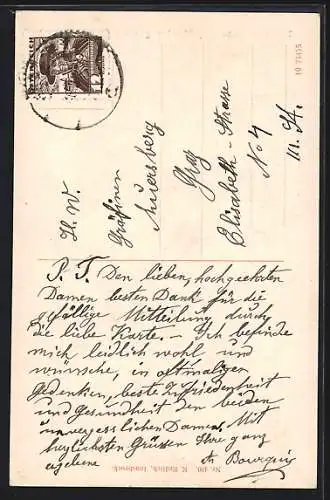 ÖSTERREICH
12
10 71415
H. W.
Gräfinen
Auersberg
Graz
Elisabeth-Strasse
No 4
III. St.
P. T. Den lieben, hochgeehrten
Damen besten Dank für die
gefällige Mitteilung durch
die liebe Karte. – Ich befinde
mich leidlich wohl und
wünsche, in oftmaligen
Gedenken, beste Zufriedenheit
und Gesundheit den beiden
unvergesslichen Damen. Mit
herzlichsten Grüssen Ihre ganz
ergebene Bourguig
Innsbruck.